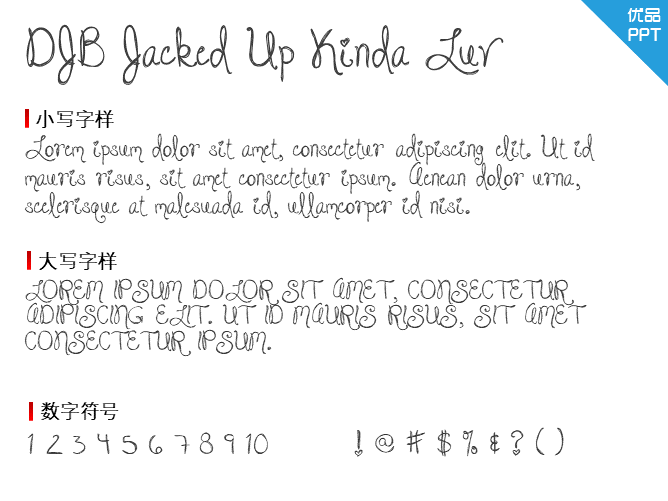 优品
PPT
DJB Jacked Up Kinda Luv
小写字样
Lorem ipsum dolor sit amet, consectetur adipiscing elit. Ut id
mauris risus, sit amet consectetur ipsum. Aenean dolor urna,
scelerisque at malesuada id, ullamcorper id nisi.
大写字样
LOREM IPSUM DOLOR SIT AMET, CONSECTETUR
ADIPISCING ELIT. UT ID MAURIS RISUS, SIT AMET
CONSECTETUR IPSUM.
数字符号
1 2 3 4 5 6 7 8 9 10 ! @ # $ % & ? ( )